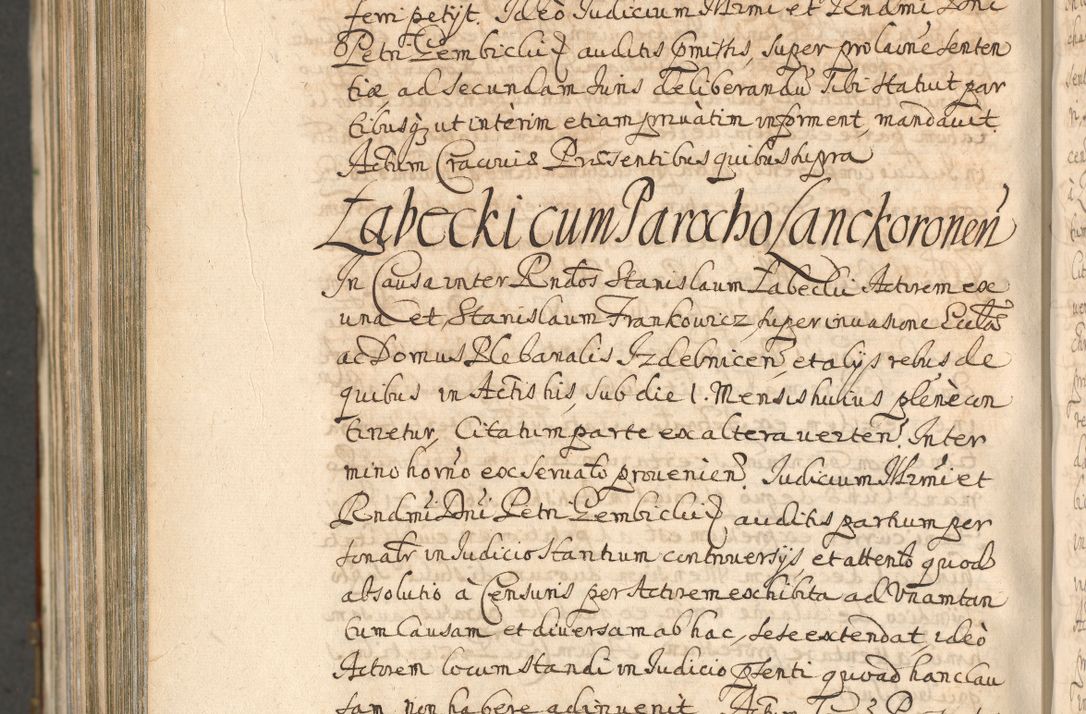 ferri petijt. Ideò Iudicium Illrmi et Rndmi Dni
Petri Gembicki auditis pmissis, super prolaõne senten
tiæ, ad secundam Iuris deliberandũ sibi statuit par
tibusq; ut intèrim etiam privàtim informent, mandavit.
Actum Cracoviæ Præsentibus quibus supra
Łabecki cum Parocho Lanckoronen̄
In Causa inter Rndos Stanislaum Łabecki Actorem ex
una et Stanislaum Frankowicz, super invasione Eccłæ
ac Domus Plebanalis Izdebnicen̄ et alijs rebus de
quibus in Actis his, sub die 1. Mensis huius plenè con
tinetur, Citatum parte ex altera verten̄. In ter
mino horño ex servato provenien̄. Iudicium Illrmi et
Rndmi Dni Petri Gembicki auditis partium per
sonalr in Iudicio stantium controversijs, et attento quod
absolutio à Censuris per Actorem exhibita ad Unam tan
tum Causam et diversam ab hac, sese extendat, ideò
Actorem locum standi in Iudicio psenti quoad hanc Cau
sam non habere adinvenit.